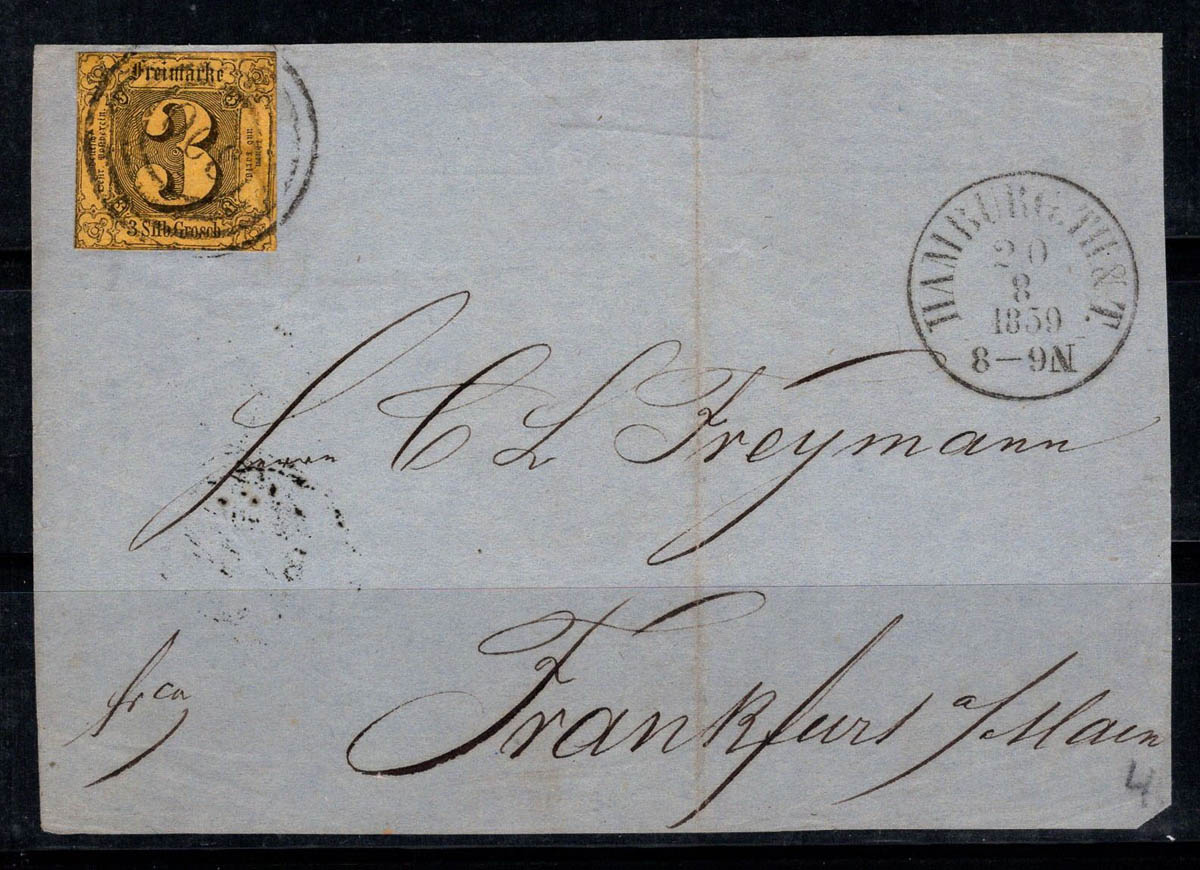 Freimarke
3
3 Silb. Grosch.
HAMBURG TH & T.
20
8
1859
8-9N
Herrn C L Freymann
frco
Frankfurt a/Main
4